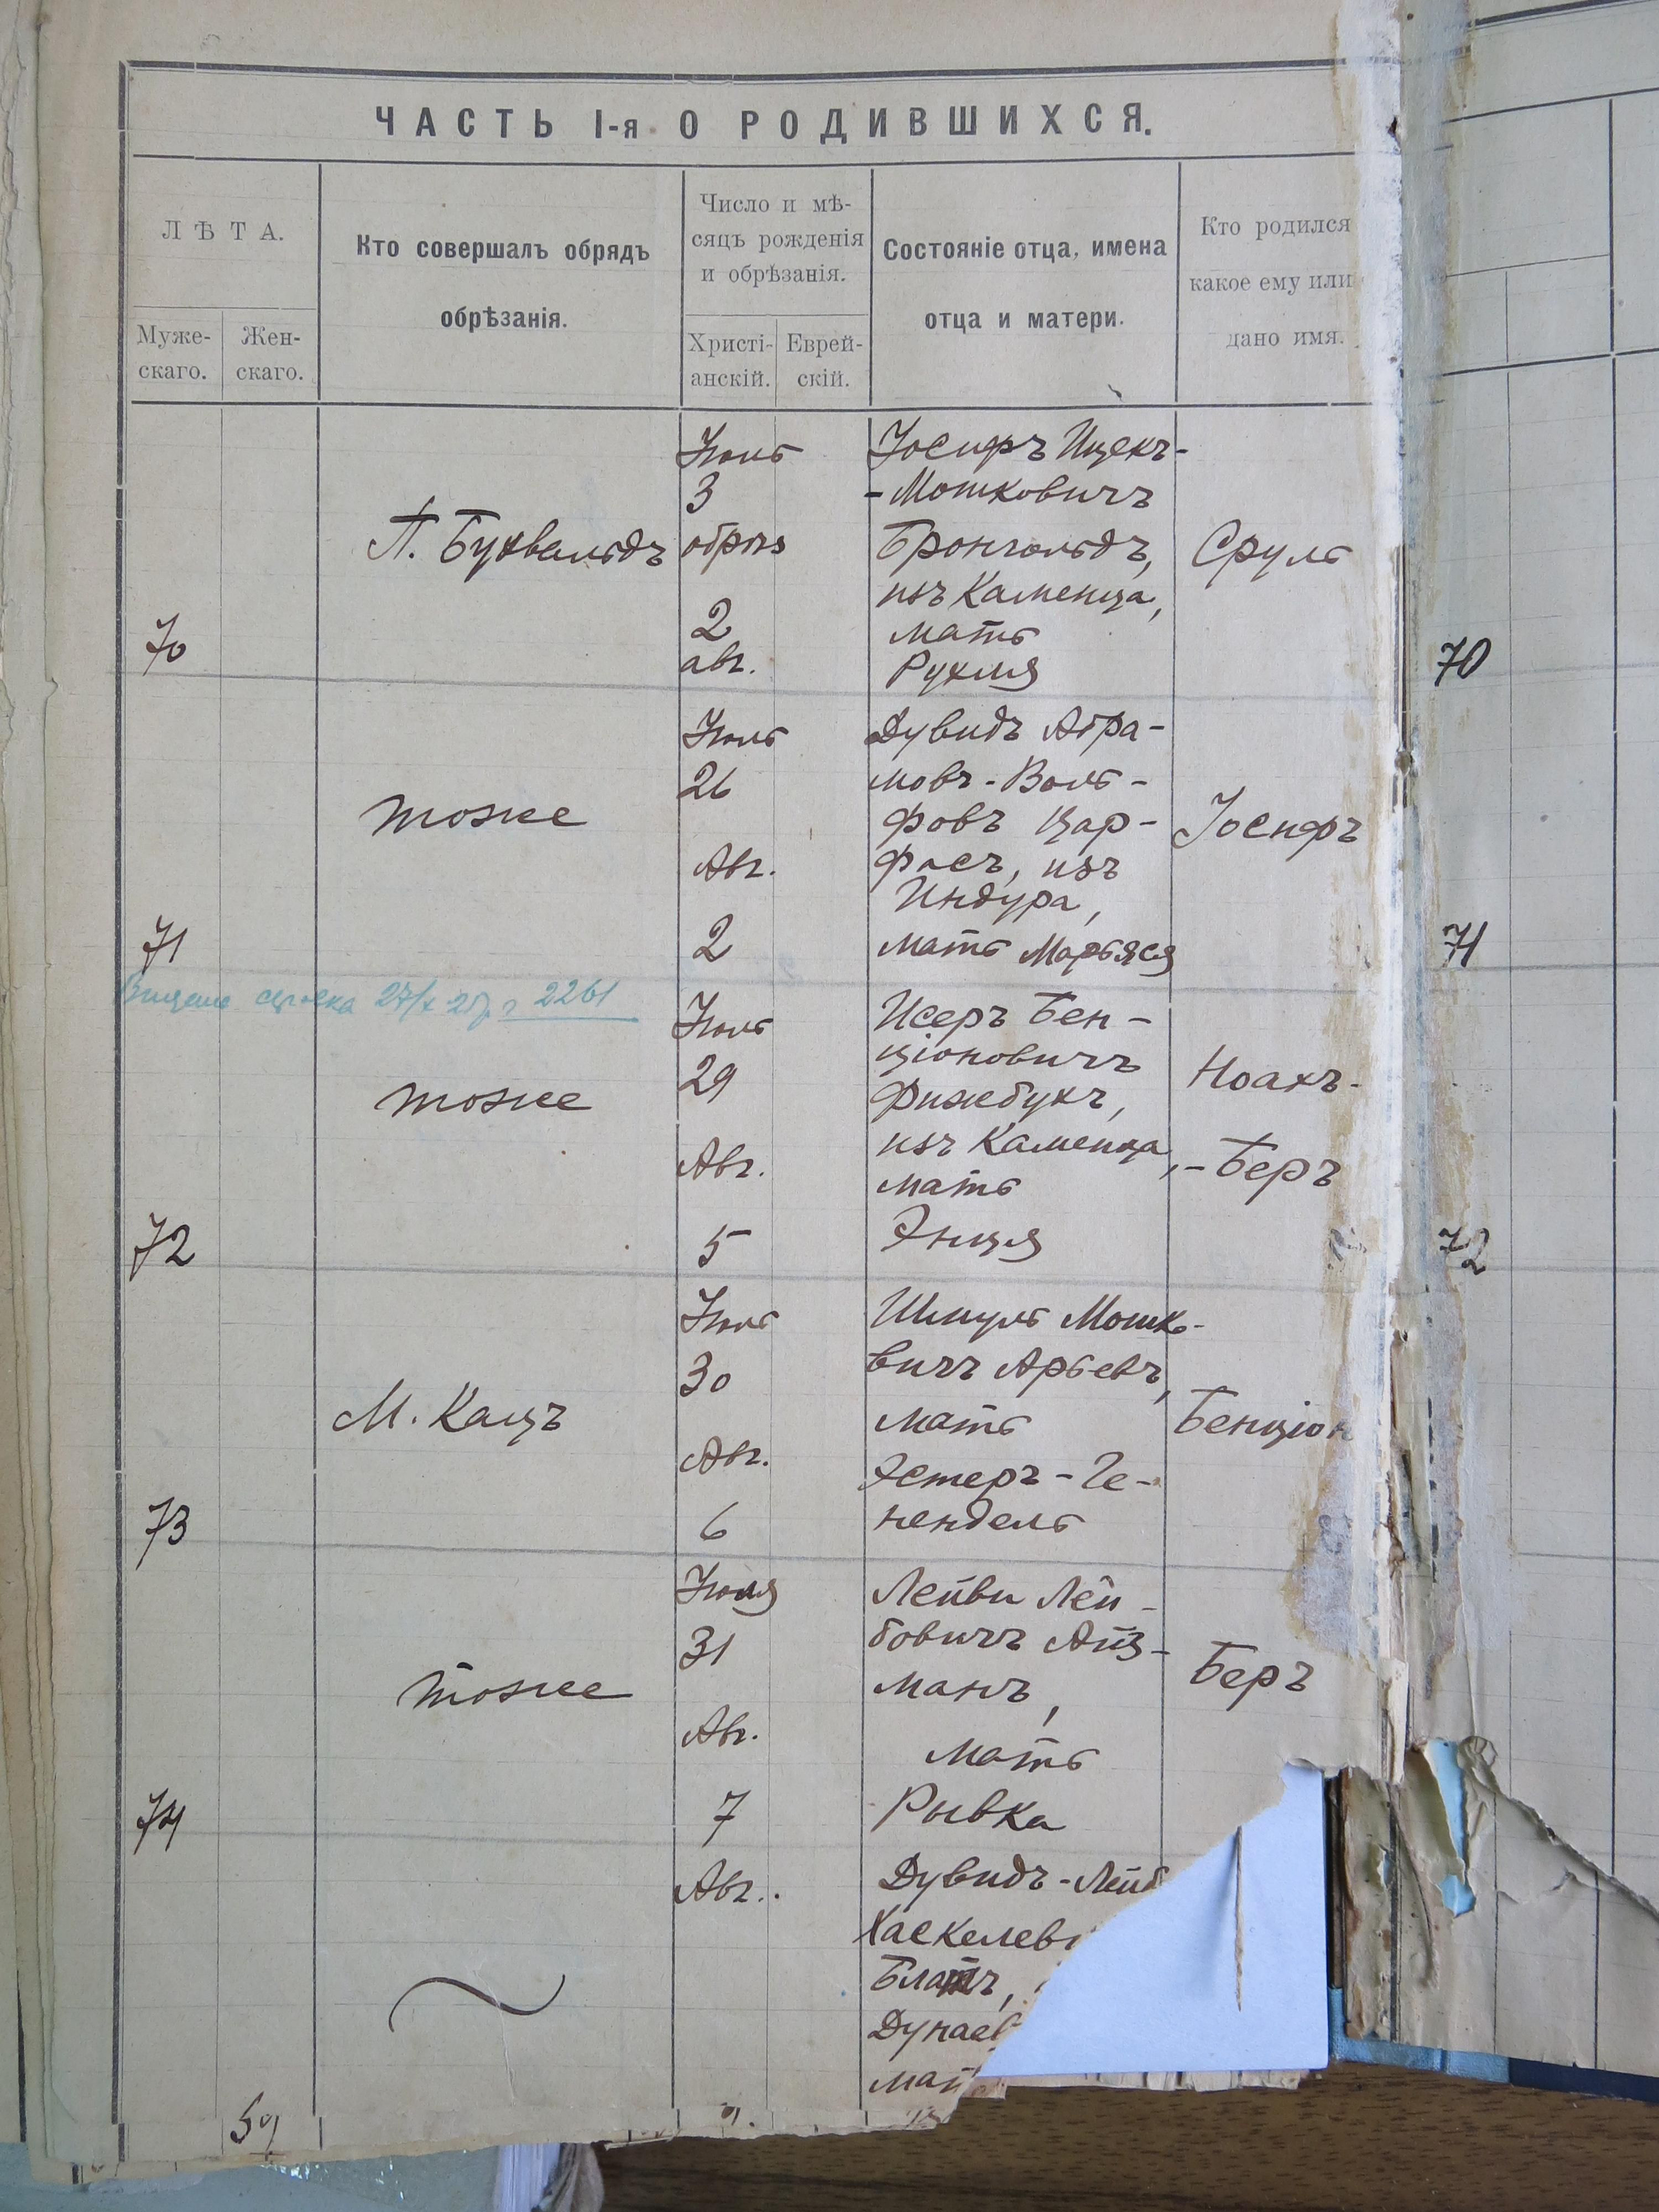 ЧАСТЬ I-я О РОДИВШИХСЯ.
ЛѢТА.
Муже-
скаго.
Жен-
скаго.
Кто совершалъ обрядъ
обрѣзанія.
Число и мѣ-
сяцъ рожденія
и обрѣзанія.
Христі-
анскій.
Еврей-
скій.
Состояніе отца, имена
отца и матери.
Кто родился
какое ему или
дано имя.
70
П. Бухвальдъ
Іюль
3
обрѣз
2
авг.
Іосифъ Ицекъ-
-Мошковичъ
Бронгольдъ,
изъ Каменца,
мать
Рухля
Сруль
70
71
тоже
Іюль
26
Авг.
2
Дувидъ Абра-
мовъ-Воль-
фовъ Цар-
фасъ, изъ
Индура,
мать Марьяся
Іосифъ
71
27/X 25 г. 2261
72
тоже
Іюль
29
Авг.
5
Исеръ Бен-
ціоновичъ
Фижбукъ,
изъ Каменца,
мать
Энця
Ноахъ-
-Беръ
72
73
М. Кацъ
Іюль
30
Авг.
6
Шмуль Мошко-
вичъ Арьевъ,
мать
Эстеръ-Ге-
нендель
Бенціон
74
тоже
Іюля
31
Авг.
7
Лейви Лей-
бовичъ Айз-
манъ,
мать
Рывка
Беръ
59
Авг.
Дувидъ-Лейб
Хаскелеви
Блатъ,
Дунаев
мат